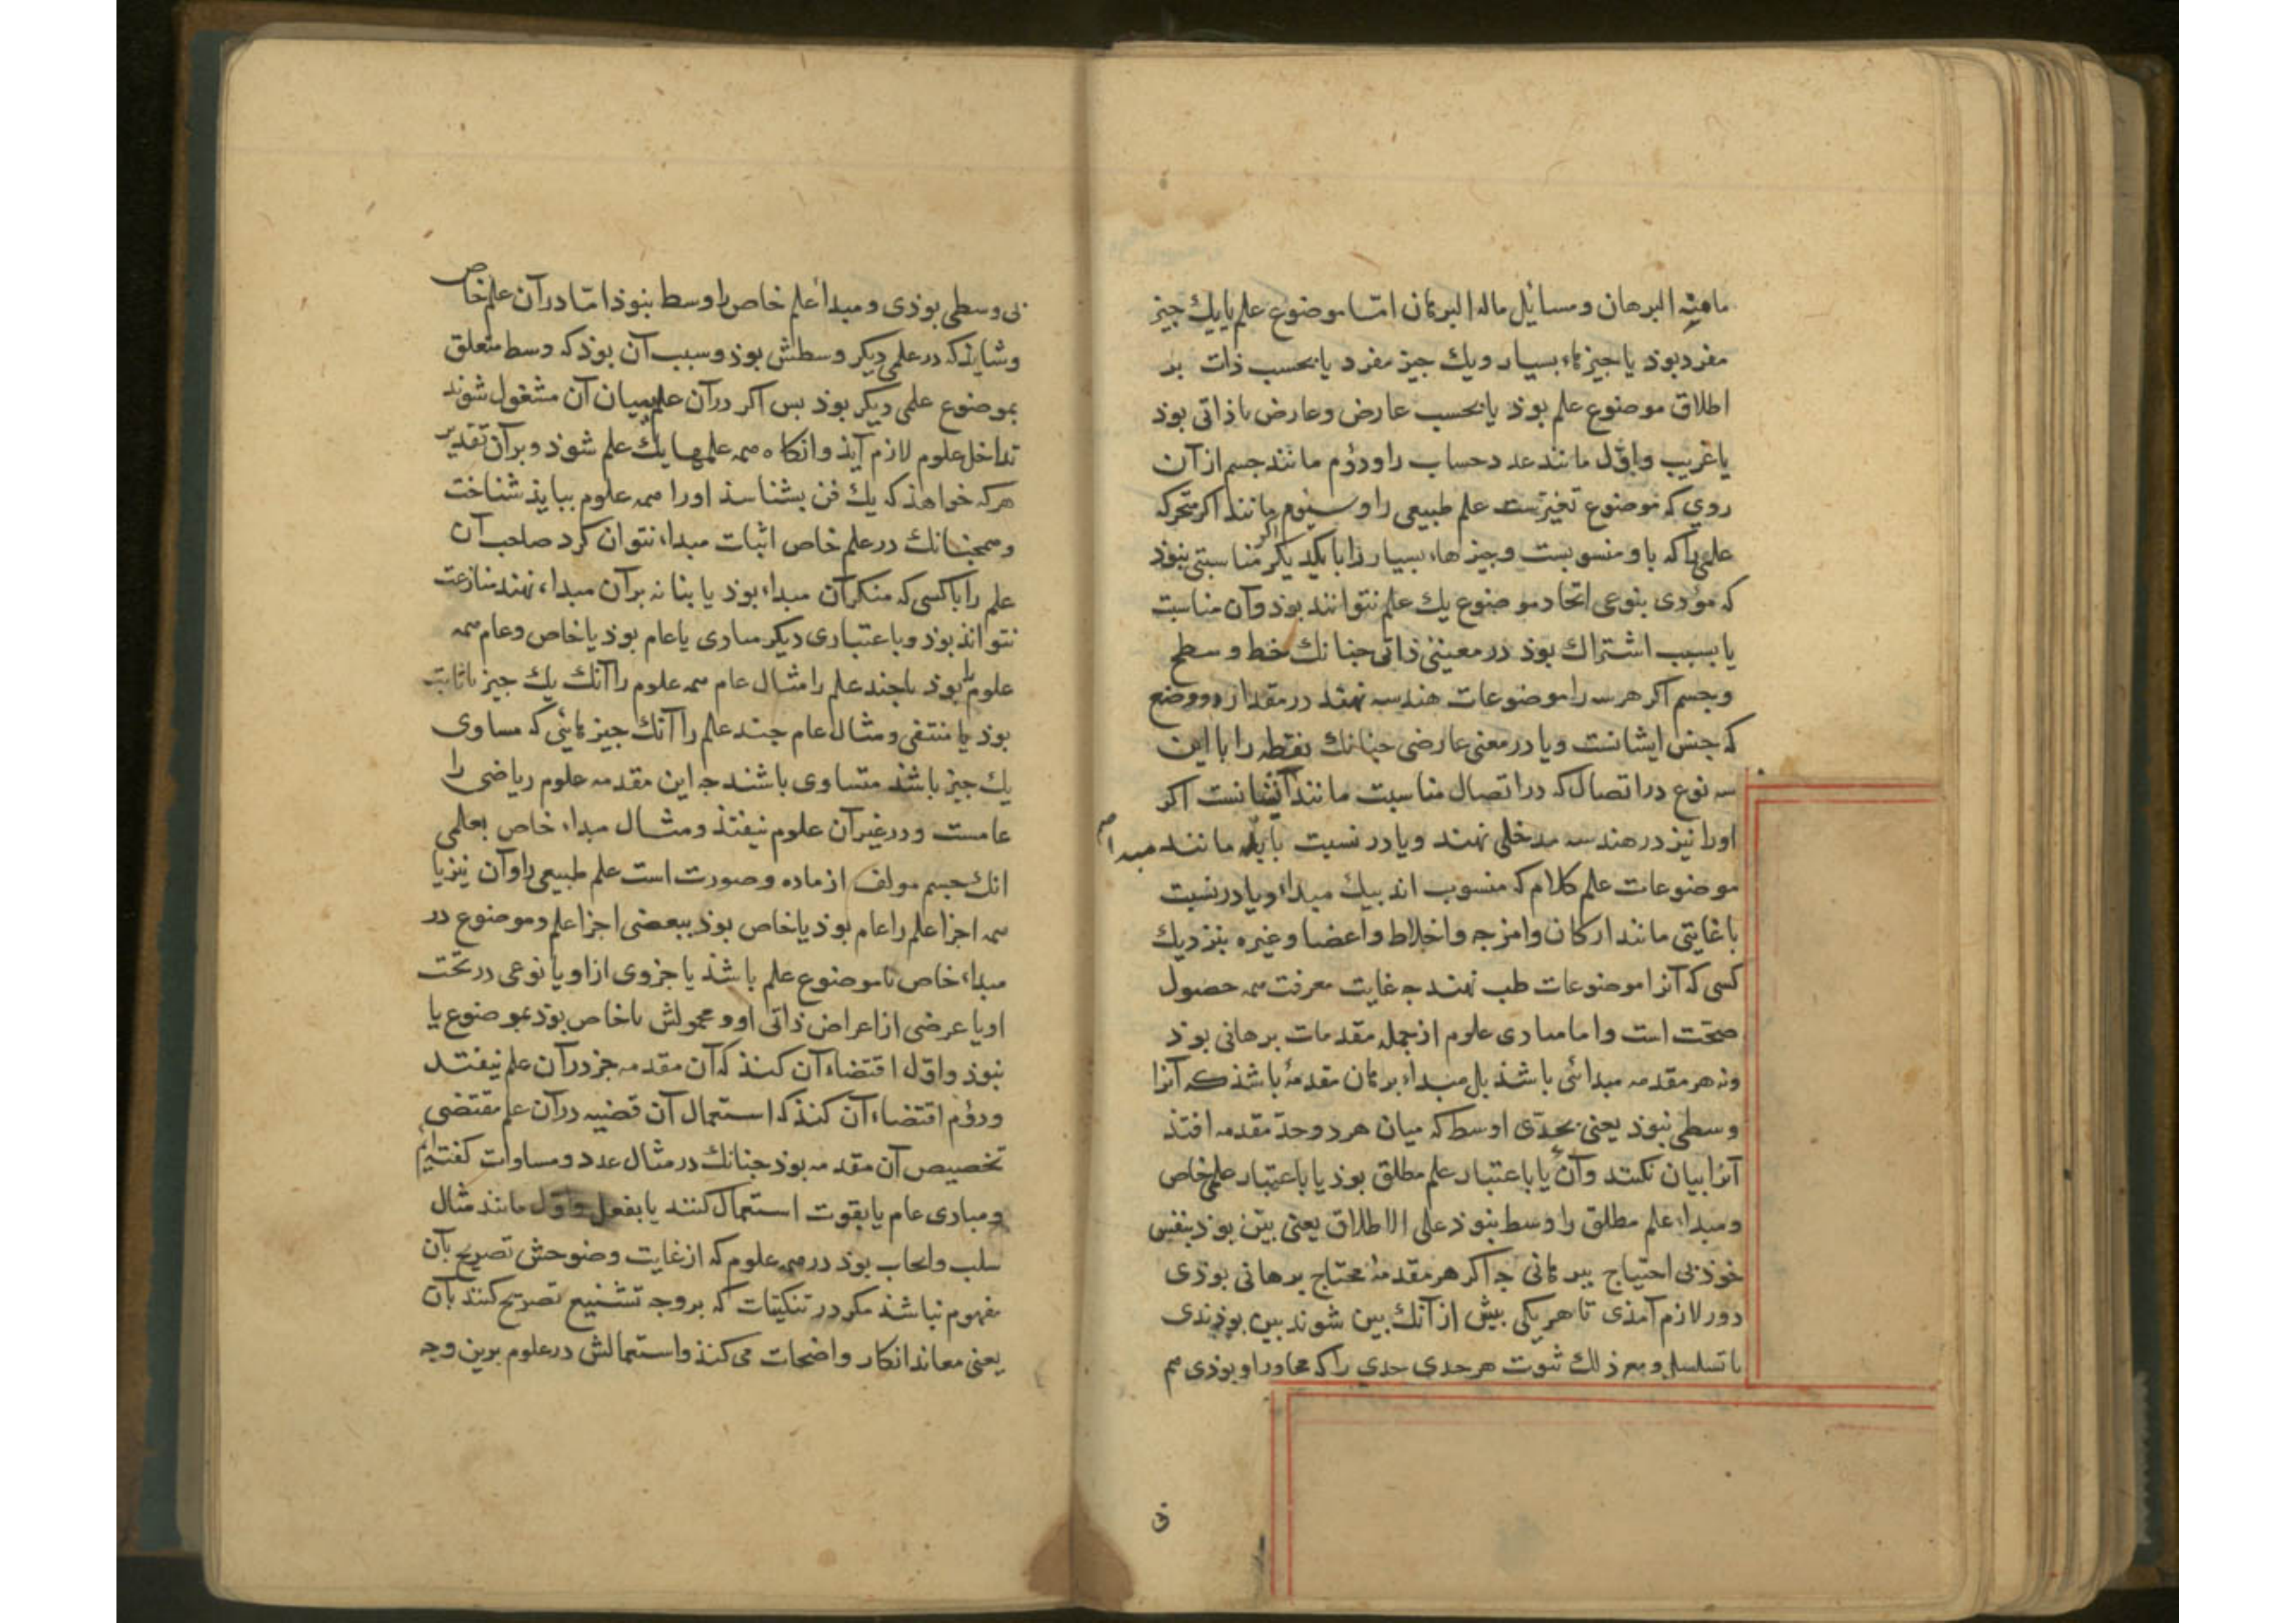 ماهیة البرهان ومسائل ماله البرهان امّا موضوع علم یا یك جیز
مفرد بوذ یا جیزهاء بسیار ویك جیز مفرد یا بحسب ذات بر
اطلاق موضوع علم بوذ یا بحسب عارض وعارض یا ذاتی بوذ
یا غریب واوّل مانند عدد حساب را ودوّم مانند جسم از آن
روی که موضوع تغیرست علم طبیعی را وسیوم مانند اکر متحرکه
علمی را که باو منسوبست وجیزهاء بسیار را اکر با یکدیکر مناسبتی نبوذ
که مؤدی بنوعی اتحاد موضوع یك علم نتوانند بوذ وآن مناسبت
یا بسبب اشتراك بوذ در معنیٔ ذاتی جنانك خط و سطح
وجسم اکر هر سه را موضوعات هندسه نهند در مقدار ووضع
که جنس ایشانست ویا در معنی عارضی جنانك نقطه را با این
سه نوع در اتصال که در اتصال مناسبت مانند ایشانست اکر
اورا نیز در هندسه مدخلی نهند ویا در نسبت با مانند مبدا
موضوعات علم کلام که منسوب اند بیك مبداء ویا در نسبت
با غایتی مانند ارکان وامزجه واخلاط واعضا وغیره بنزدیك
کسی که آنرا موضوعات طب نهند جه غایت معرفت همه حصول
صحّت است واما مبادی علوم از جمله مقدمات برهانی بوذ
ونه هر مقدمه مبدائی باشذ بل مبداء برهان مقدمهٔ باشذ که آنرا
وسطی نبوذ یعنی بحدّی اوسط که میان هر دو حدّ مقدمه افتذ
آنرا بیان نکنند وآن یا باعتبار علم مطلق بوذ یا باعتبار علمی خاص
ومبداء علم مطلق را وسط نبوذ علی الاطلاق یعنی بیّن بوذ بنفس
خوذ بی احتیاج ببرهانی جه اکر هر مقدمهٔ محتاج برهانی بوذی
دور لازم آمذی تا هر یکی بیش از آنك بین شوند بین بوذندی
یا تسلسل ومع ذلك ثبوت هر حدی حدی را که مجاور او بوذی هم
بی وسطی بوذی ومبداء علم خاص را وسط نبوذ امّا در آن علم خاص
وشایذ که در علمی دیکر وسطش بوذ وسبب آن بوذ که وسط متعلق
بموضوع علمی دیکر بوذ بس اکر در آن علم ببیان آن مشغول شوند
تداخل علوم لازم آیذ وانکاه همه علمها یك علم شوذ وبر آن تقدیر
هر که خواهذ که یك فن بشناسذ اورا همه علوم ببایذ شناخت
وهمجنانك در علم خاص اثبات مبداء نتوان کرد صاحب آن
علم را با کسی که منکر آن مبداء بوذ یا بنا نه بر آن مبداء نهند منازعت
نتواند بوذ وباعتباری دیکر مبادی یا عام بوذ یا خاص وعام همه
علوم را بوذ یا جند علم را مثال عام همه علوم را آنك یك جیز یا ثابت
بوذ یا منتفی ومثال عام جند علم را آنك جیزهائی که مساوی
یك جیز باشند متساوی باشند جه این مقدمه علوم ریاضی را
عامست ودر غیر آن علوم نیفتذ ومثال مبداء خاص بعلمی
انك جسم مولف از ماده وصورت است علم طبیعی را وآن نیز یا
همه اجزا علم را عام بوذ یا خاص بوذ ببعضی اجزا علم وموضوع در
مبداء خاص یا موضوع علم باشذ یا جزوی از او یا نوعی در تحت
او یا عرضی از اعراض ذاتی او ومحمولش یا خاص بوذ بموضوع یا
نبوذ واوّل اقتضاء آن کنذ که آن مقدمه جز در آن علم نیفتد
ودوّم اقتضاء آن کنذ که استعمال آن قضیه در آن علم مقتضی
تخصیص آن مقدمه بوذ جنانك در مثال عدد ومساوات کفته‌ایم
ومبادی عام یا بقوت استعمال کنند یا بفعل واوّل مانند مثال
سلب وایجاب بوذ در همه علوم که از غایت وضوحش تصریح بآن
مفهوم نباشذ مکر در تنکیتات که بر وجه تشنیع تصریح کنند بآن
یعنی معاند انکار واضحات می کنذ واستعمالش در علوم برین وجه